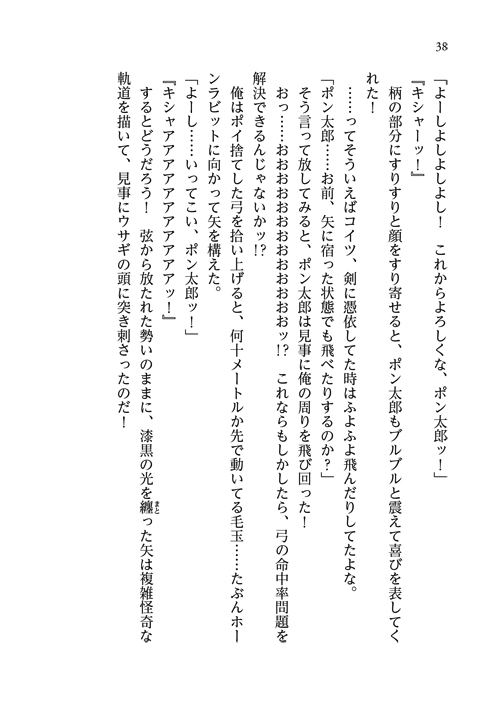 38
「よーしよしよしよし！　これからよろしくな、ポン太郎ッ！」
『キシャーッ！』
　柄の部分にすりすりと顔をすり寄せると、ポン太郎もブルブルと震えて喜びを表してく
れた！
　……ってそういえばコイツ、剣に憑依してた時はふよふよ飛んだりしてたよな。
「ポン太郎……お前、矢に宿った状態でも飛べたりするのか？」
　そう言って放してみると、ポン太郎は見事に俺の周りを飛び回った！
　おっ……おおおおおおおおおおおおおおおッ!?　これならもしかしたら、弓の命中率問題を
解決できるんじゃないかッ!?
　俺はポイ捨てした弓を拾い上げると、何十メートルか先で動いてる毛玉……たぶんホー
ンラビットに向かって矢を構えた。
「よーし……いってこい、ポン太郎ッ！」
『キシャアアアアアアアアアアアッ！』
　するとどうだろう！　弦から放たれた勢いのままに、漆黒の光を纏まとった矢は複雑怪奇な
軌道を描いて、見事にウサギの頭に突き刺さったのだ！